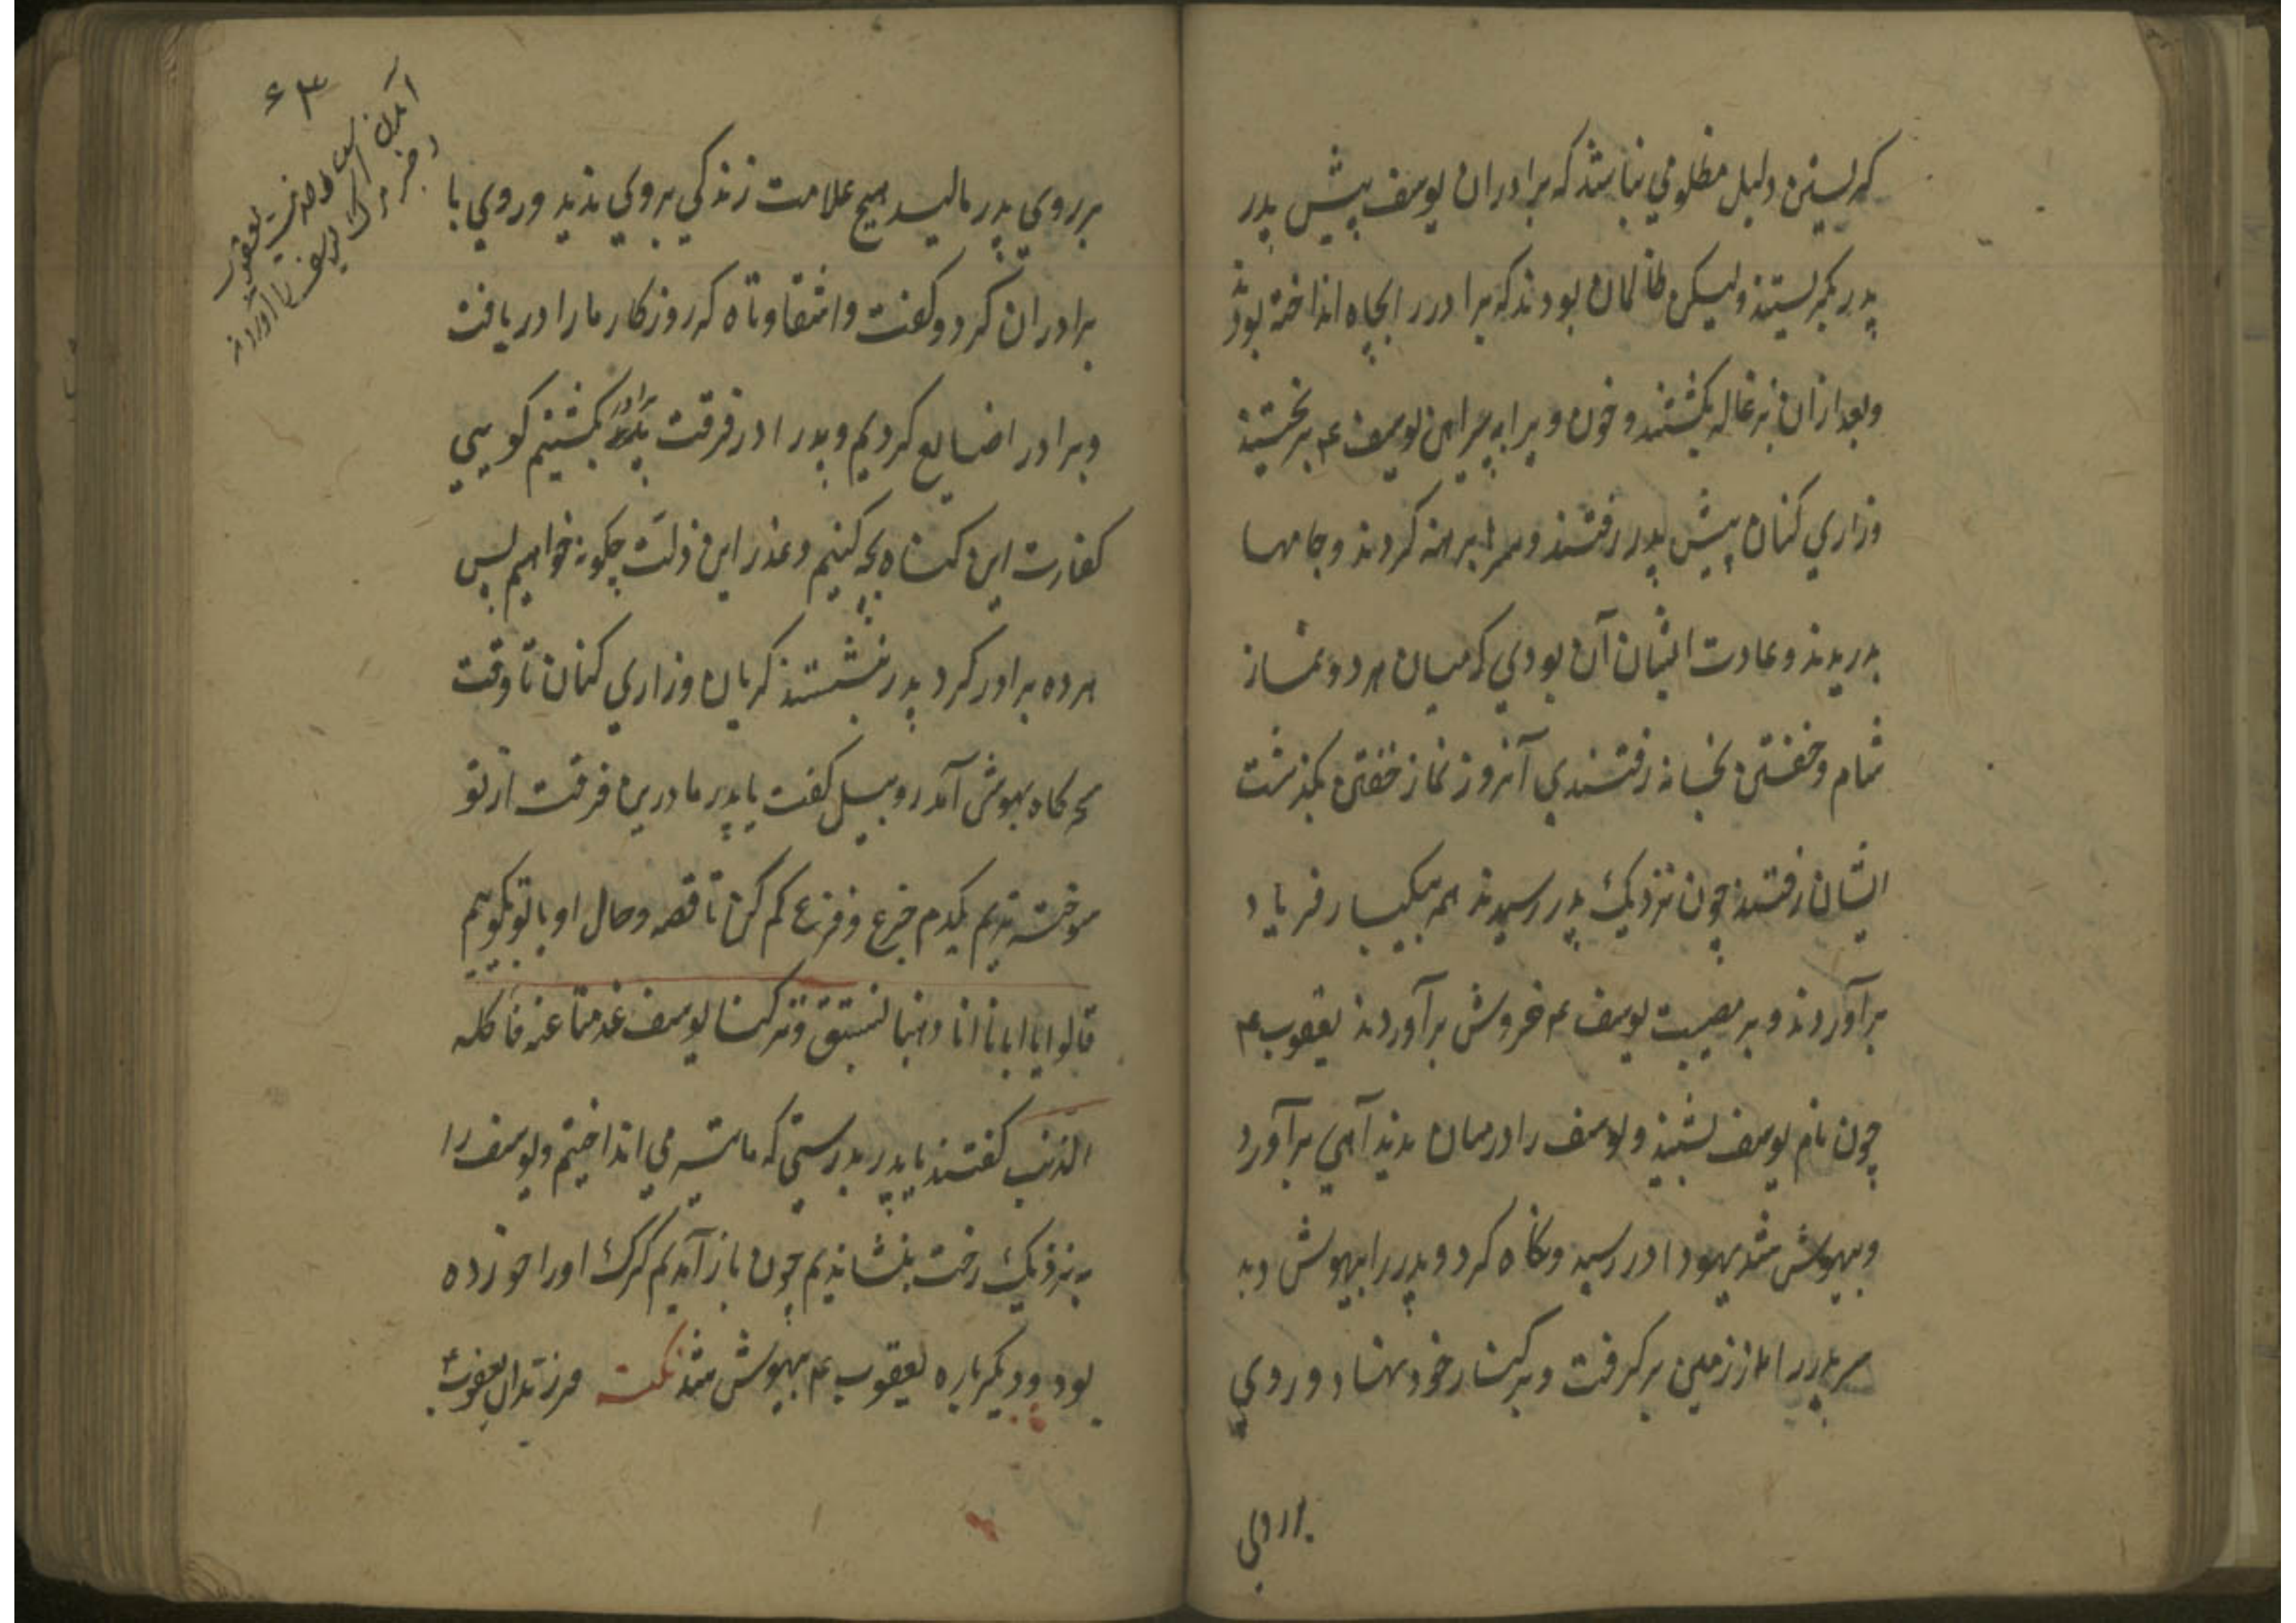 کریستن دلیل مظلومي نباشد که برادران یوسف پیش پدر
پدر بکریستند ولیکن ظالمان بودند که برادر را بچاه انداخته بودند
وبعد ازان بزغاله بکشتند و خون ویرا به پیراهن یوسف ع بریختند
وزاري کنان پیش پدر رفتند وسرها برهنه کردند وجامها
بدریدند وعادت ایشان آن بودي که میان هر دو نماز
شام وخفتن بخانه رفتندي آنروز نماز خفتن بکذشت
ایشان رفتند چون نزدیک پدر رسیدند همه بیکبار فریاد
برآوردند و بر مصیبت یوسف ع خروش برآوردند یعقوب ع
چون نام یوسف بشنید ویوسف را درمیان ندید آهي برآورد
وبیهوش شد یهودا در رسید ونکاه کرد و پدر را بیهوش دید
سر پدر را از زمین برکرفت و بر کنار خود نهاد و روي
بر روي
۶۳
آمدن
یعقوب
وخبر مرک یوسف را آوردند
بر روي پدر مالید هیچ علامت زندکي بر وي ندید وروي با
برادران کرد وکفت واشقاوتاه که روزکار ما را دریافت
وبرادر را ضایع کردیم وپدر را در فرقت برادر بکشتیم کویي
کفارت این کناه بچه کنیم وعذر این ذلت چکونه خواهیم پس
هر ده برادر کرد پدر بنشستند کریان وزاري کنان تا وقت
سحرکاه بهوش آمد روبیل کفت یا پدر ما درین فرقت از تو
سوخته تریم یکدم جزع وفزع کم کن تا قصه وحال او با تو بکوییم
قالوا یا ابانا انا ذهبنا نستبق وترکنا یوسف عند متاعنا فاکله
الذئب کفتند یا پدر بدرستي که ما تیر مي انداختیم ویوسف را
به نزدیک رخت بنشاندیم چون باز آمدیم کرک او را خورده
بود ودیکرباره یعقوب ع بیهوش شد نکته فرزندان یعقوب ع